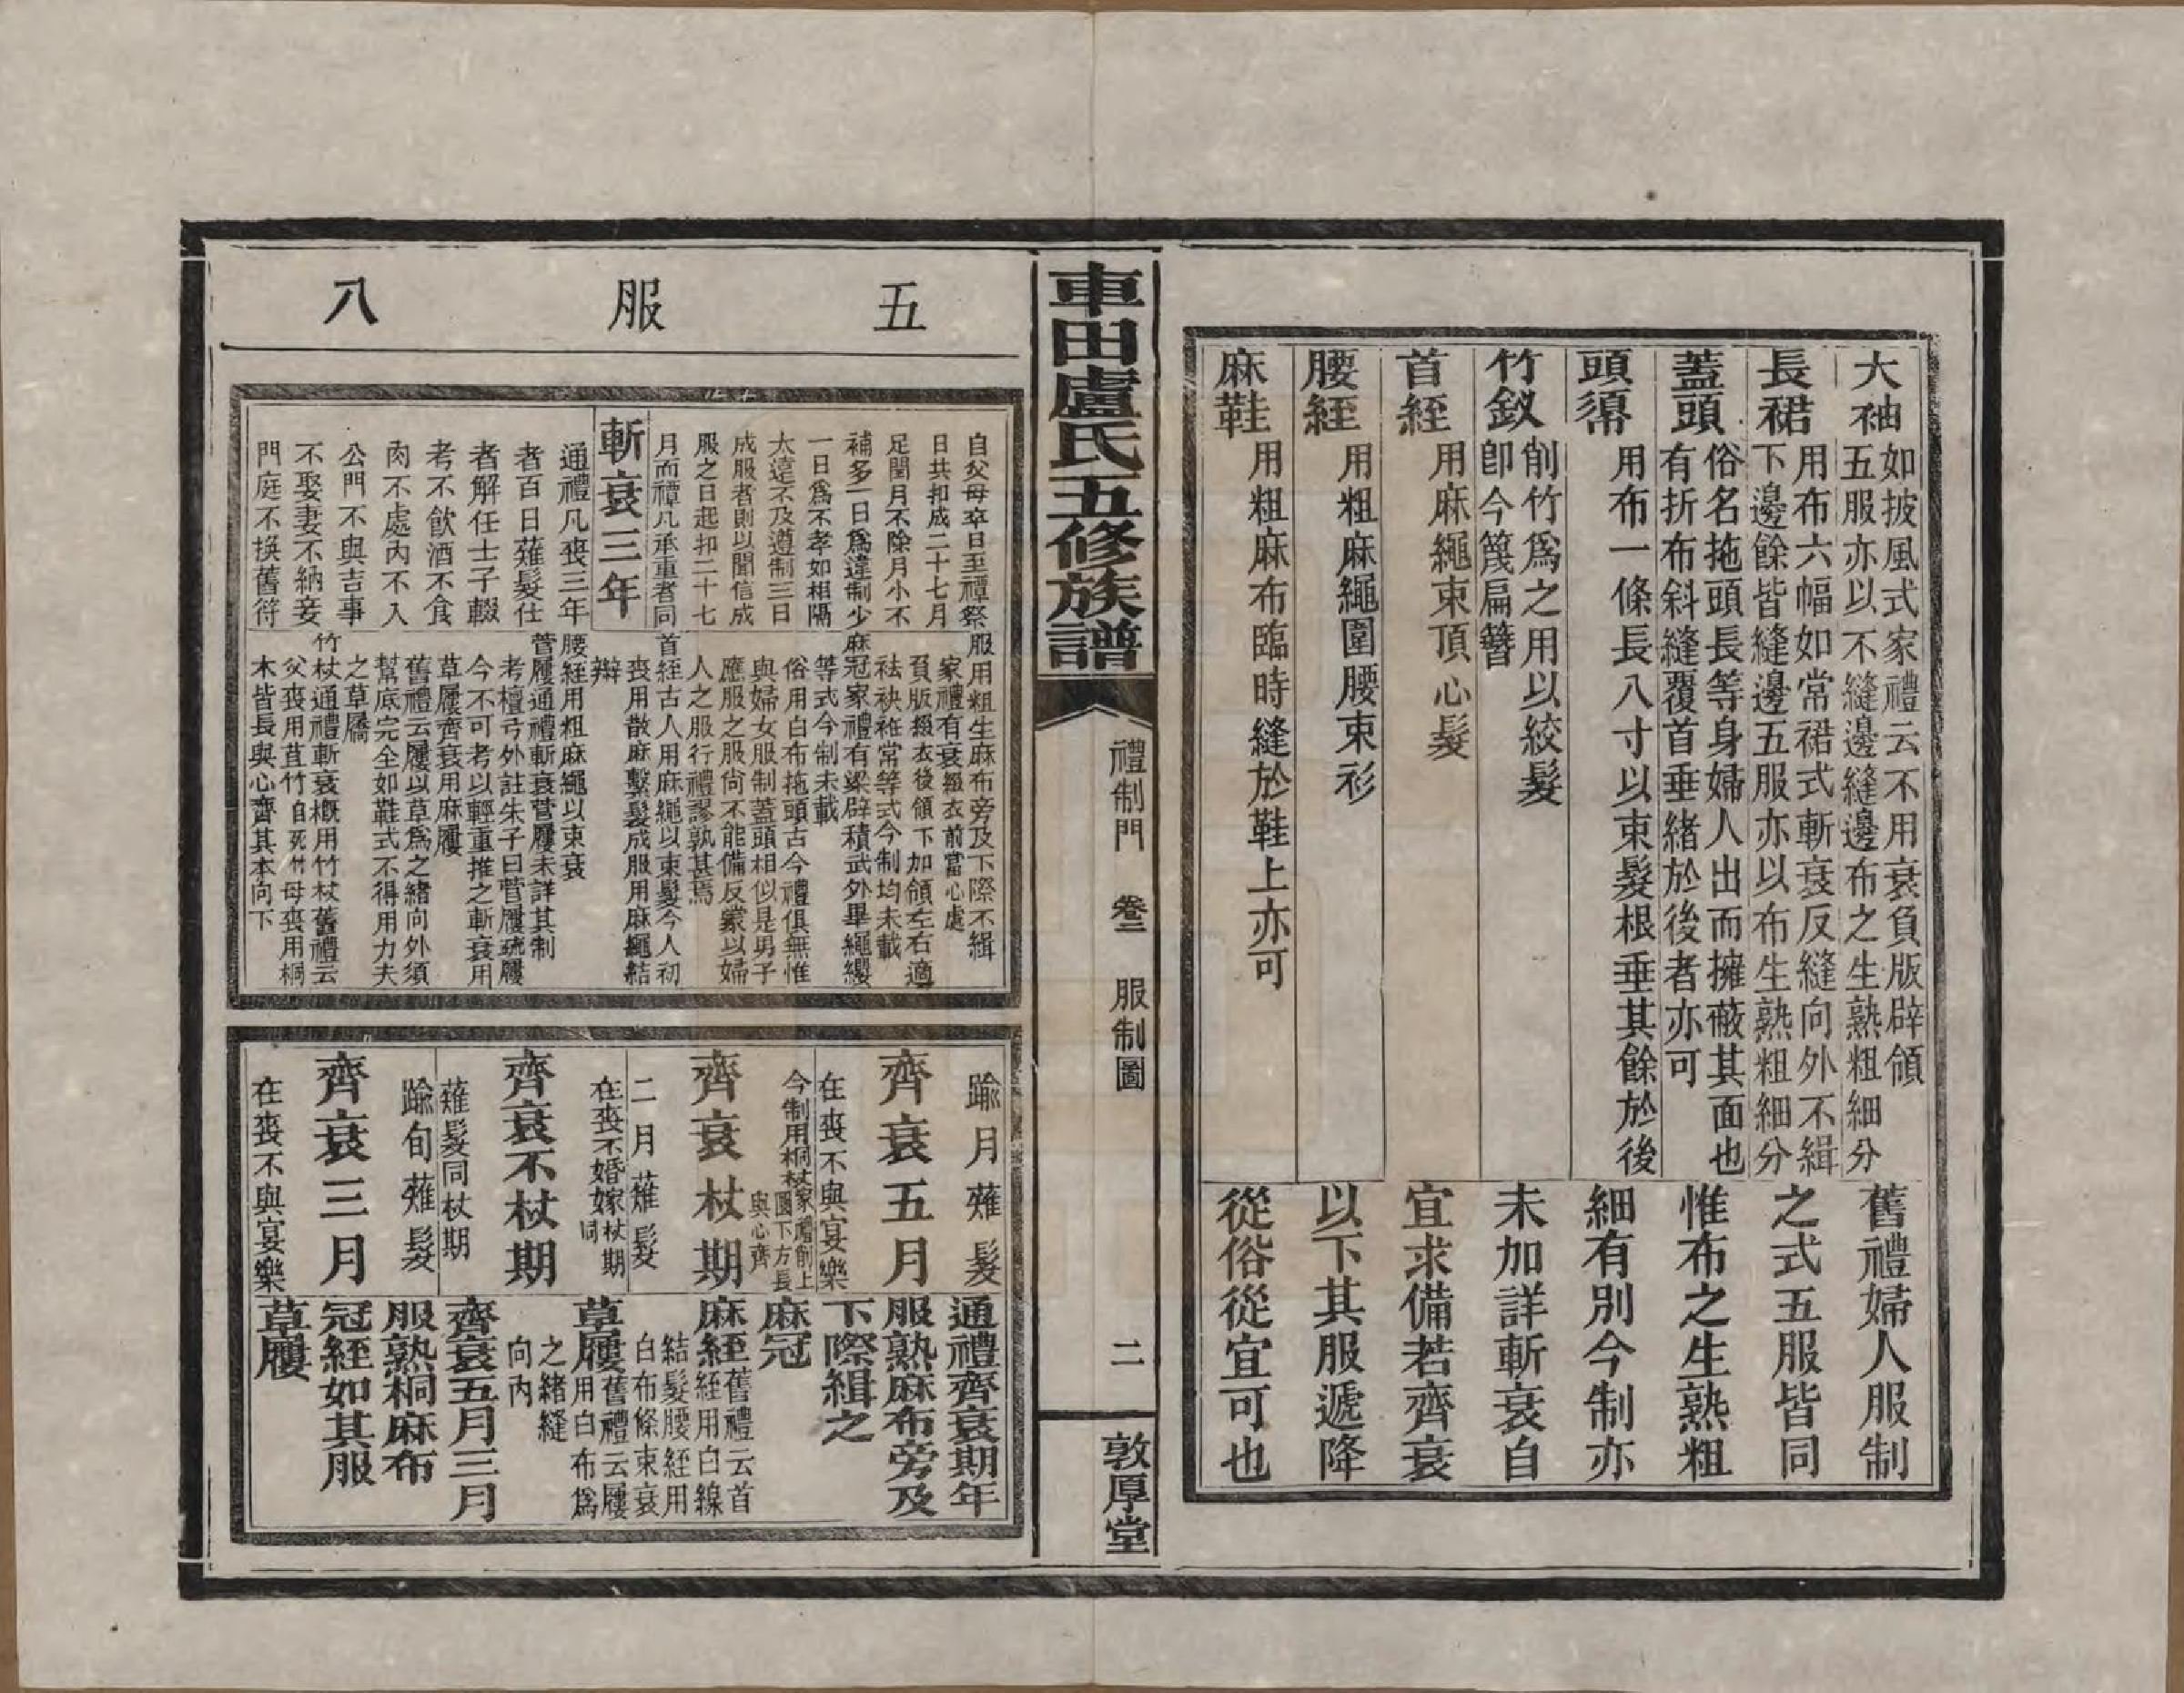 大袖
如披風式家禮云不用衰負版辟領
五服亦以不縫邊縫邊布之生熟粗細分
長裙
用布六幅如常裙式斬衰反縫向外不緝
下邊餘皆縫邊五服亦以布生熟粗細分
蓋頭
俗名拖頭長等身婦人出而擁蔽其面也
有折布斜縫覆首垂緒於後者亦可
頭䙚
用布一條長八寸以束髮根垂其餘於後
竹釵
削竹爲之用以絞髮
卽今篾扁簪
首絰
用麻繩束頂心髮
腰絰
用粗麻繩圍腰束衫
麻鞋
用粗麻布臨時縫於鞋上亦可
舊禮婦人服制
之式五服皆同
惟布之生熟粗
細有別今制亦
未加詳斬衰自
宜求備若齊衰
以下其服遞降
從俗從宜可也
車田盧氏五修族譜
禮制門 卷二 服制圖
二
敦厚堂
五服八
自父母卒日至禫祭
日共扣成二十七月
足閏月不除月小不
補多一日爲違制少
一日爲不孝如相隔
太遠不及遵制三日
成服者則以聞信成
服之日起扣二十七
月而禫凡承重者同
斬衰三年
通禮凡喪三年
者百日薙髮仕
者解任士子輟
考不飲酒不食
肉不處內不入
公門不與吉事
不娶妻不納妾
門庭不換舊符
服用粗生麻布旁及下際不緝
家禮有衰綴衣前當心處
負版綴衣後領下加領左右適
袪袂袵常等式今制均未載
麻冠家禮有梁辟積武外畢繩纓
等式今制未載
俗用白布拖頭古今禮俱無惟
與婦女服制蓋頭相似是男子
應服之服尙不能備反蒙以婦
人之服行禮謬孰甚焉
首絰古人用麻繩以束髮今人初
喪用散麻繫髮成服用麻繩結
辮
腰絰用粗麻繩以束衰
菅屨通禮斬衰菅屨未詳其制
考檀弓外註朱子曰菅屨疏屨
今不可考以輕重推之斬衰用
草屨齊衰用麻屨
舊禮云屨以草爲之緒向外須
幫底完全如鞋式不得用力夫
之草屩
竹杖通禮斬衰槪用竹杖舊禮云
父喪用苴竹自死竹母喪用桐
木皆長與心齊其本向下
踰月薙髮
齊衰五月
在喪不與宴樂
今制用桐杖家禮削上圓下方長與心齊
齊衰杖期
二月薙髮
在喪不婚嫁杖期同
齊衰不杖期
薙髮同杖期
踰旬薙髮
齊衰三月
在喪不與宴樂
通禮齊衰期年
服熟麻布旁及
下際緝之
麻冠
麻絰舊禮云首
絰用白線
結髮腰絰用
白布條束衰
草屨舊禮云屨
用白布爲
之緒縫
向內
齊衰五月三月
服熟桐麻布
冠絰如其服
草屨